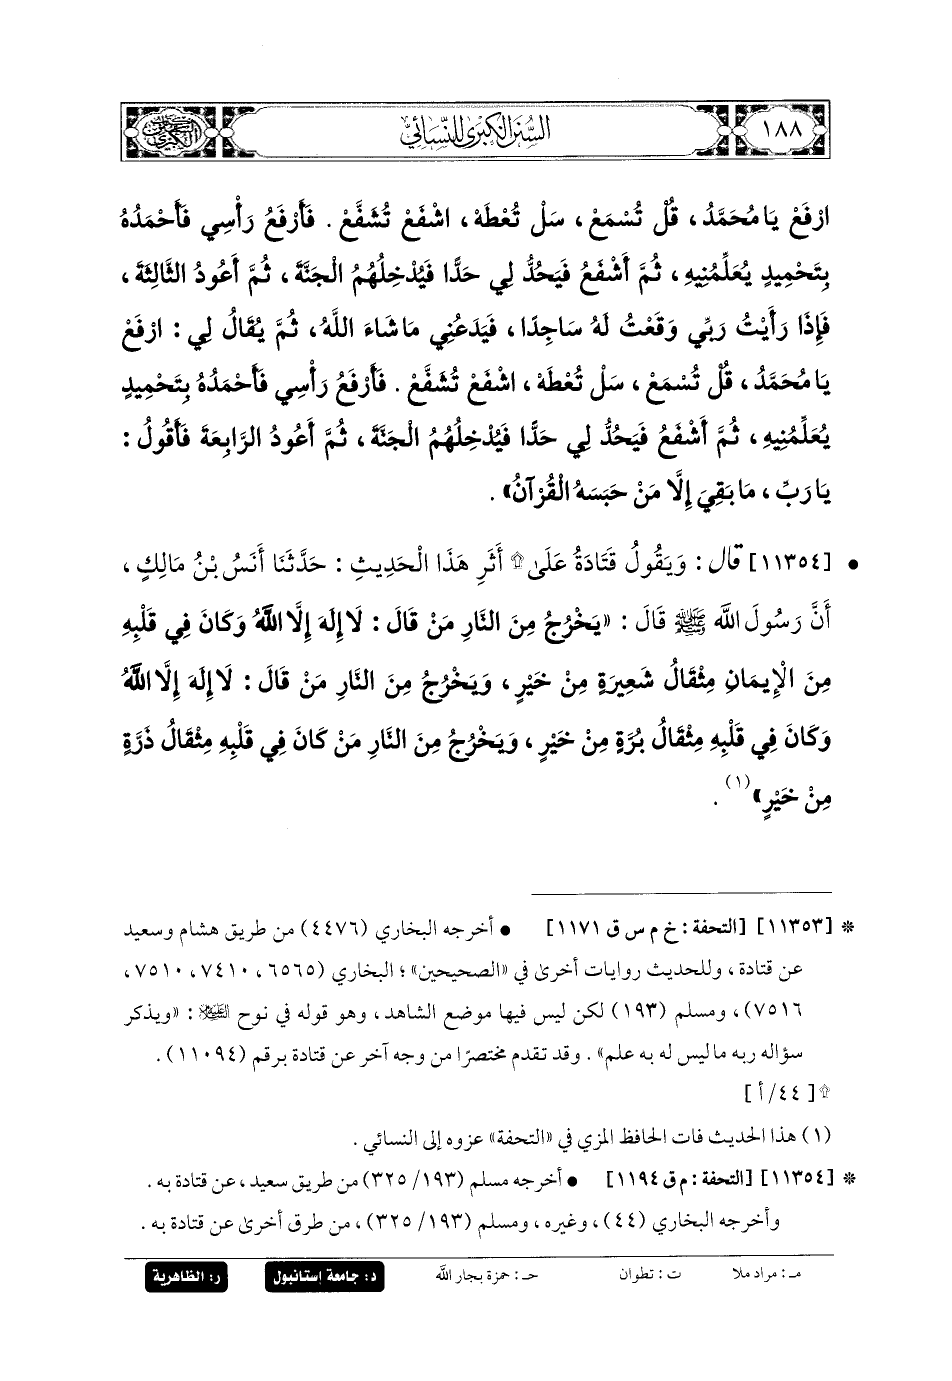 ١٨٨
السُّنَنُ الكِبْرَى لِلنَّسَائِيِّ
ارْفَعْ يَا مُحَمَّدُ، قُلْ تُسْمَعْ، سَلْ تُعْطَهْ، اشْفَعْ تُشَفَّعْ. فَأَرْفَعُ رَأْسِي فَأَحْمَدُهُ
بِتَحْمِيدٍ يُعَلِّمُنِيهِ، ثُمَّ أَشْفَعُ فَيَحُدُّ لِي حَدًّا فَيُدْخِلُهُمُ الْجَنَّةَ، ثُمَّ أَعُودُ الثَّالِثَةَ،
فَإِذَا رَأَيْتُ رَبِّي وَقَعْتُ لَهُ سَاجِدًا، فَيَدَعُنِي مَا شَاءَ اللَّهُ، ثُمَّ يُقَالُ لِي: ارْفَعْ
يَا مُحَمَّدُ، قُلْ تُسْمَعْ، سَلْ تُعْطَهْ، اشْفَعْ تُشَفَّعْ. فَأَرْفَعُ رَأْسِي فَأَحْمَدُهُ بِتَحْمِيدٍ
يُعَلِّمُنِيهِ، ثُمَّ أَشْفَعُ فَيَحُدُّ لِي حَدًّا فَيُدْخِلُهُمُ الْجَنَّةَ، ثُمَّ أَعُودُ الرَّابِعَةَ فَأَقُولُ:
يَا رَبِّ، مَا بَقِيَ إِلَّا مَنْ حَبَسَهُ الْقُرْآنُ».
• [١١٣٥٤] قال: وَيَقُولُ قَتَادَةُ عَلَى۩ أَثَرِ هَذَا الْحَدِيثِ: حَدَّثَنَا أَنَسُ بْنُ مَالِكٍ،
أَنَّ رَسُولَ اللَّهِ ﷺ قَالَ: «يَخْرُجُ مِنَ النَّارِ مَنْ قَالَ: لَا إِلَهَ إِلَّا اللَّهُ وَكَانَ فِي قَلْبِهِ
مِنَ الْإِيمَانِ مِثْقَالُ شَعِيرَةٍ مِنْ خَيْرٍ، وَيَخْرُجُ مِنَ النَّارِ مَنْ قَالَ: لَا إِلَهَ إِلَّا اللَّهُ
وَكَانَ فِي قَلْبِهِ مِثْقَالُ بُرَّةٍ مِنْ خَيْرٍ، وَيَخْرُجُ مِنَ النَّارِ مَنْ كَانَ فِي قَلْبِهِ مِثْقَالُ ذَرَّةٍ
مِنْ خَيْرٍ»(١).
* [١١٣٥٣] [التحفة: خ م س ق ١١٧١] • أخرجه البخاري (٤٤٧٦) من طريق هشام وسعيد
عن قتادة، وللحديث روايات أخرى في «الصحيحين»؛ البخاري (٦٥٦٥، ٧٤١٠، ٧٥١٠،
٧٥١٦)، ومسلم (١٩٣) لكن ليس فيها موضع الشاهد، وهو قوله في نوح عليه السلام: «ويذكر
سؤاله ربه ما ليس له به علم». وقد تقدم مختصرًا من وجه آخر عن قتادة برقم (١١٠٩٤).
۩ [٤٤/أ]
(١) هذا الحديث فات الحافظ المزي في «التحفة» عزوه إلى النسائي.
* [١١٣٥٤] [التحفة: م ق ١١٩٤] • أخرجه مسلم (١٩٣/ ٣٢٥) من طريق سعيد، عن قتادة به.
وأخرجه البخاري (٤٤)، وغيره، ومسلم (١٩٣/ ٣٢٥)، من طرق أخرى عن قتادة به.
مـ: مراد ملا ت: تطوان حـ: حمزة بجار الله د: جامعة إستانبول ر: الظاهرية